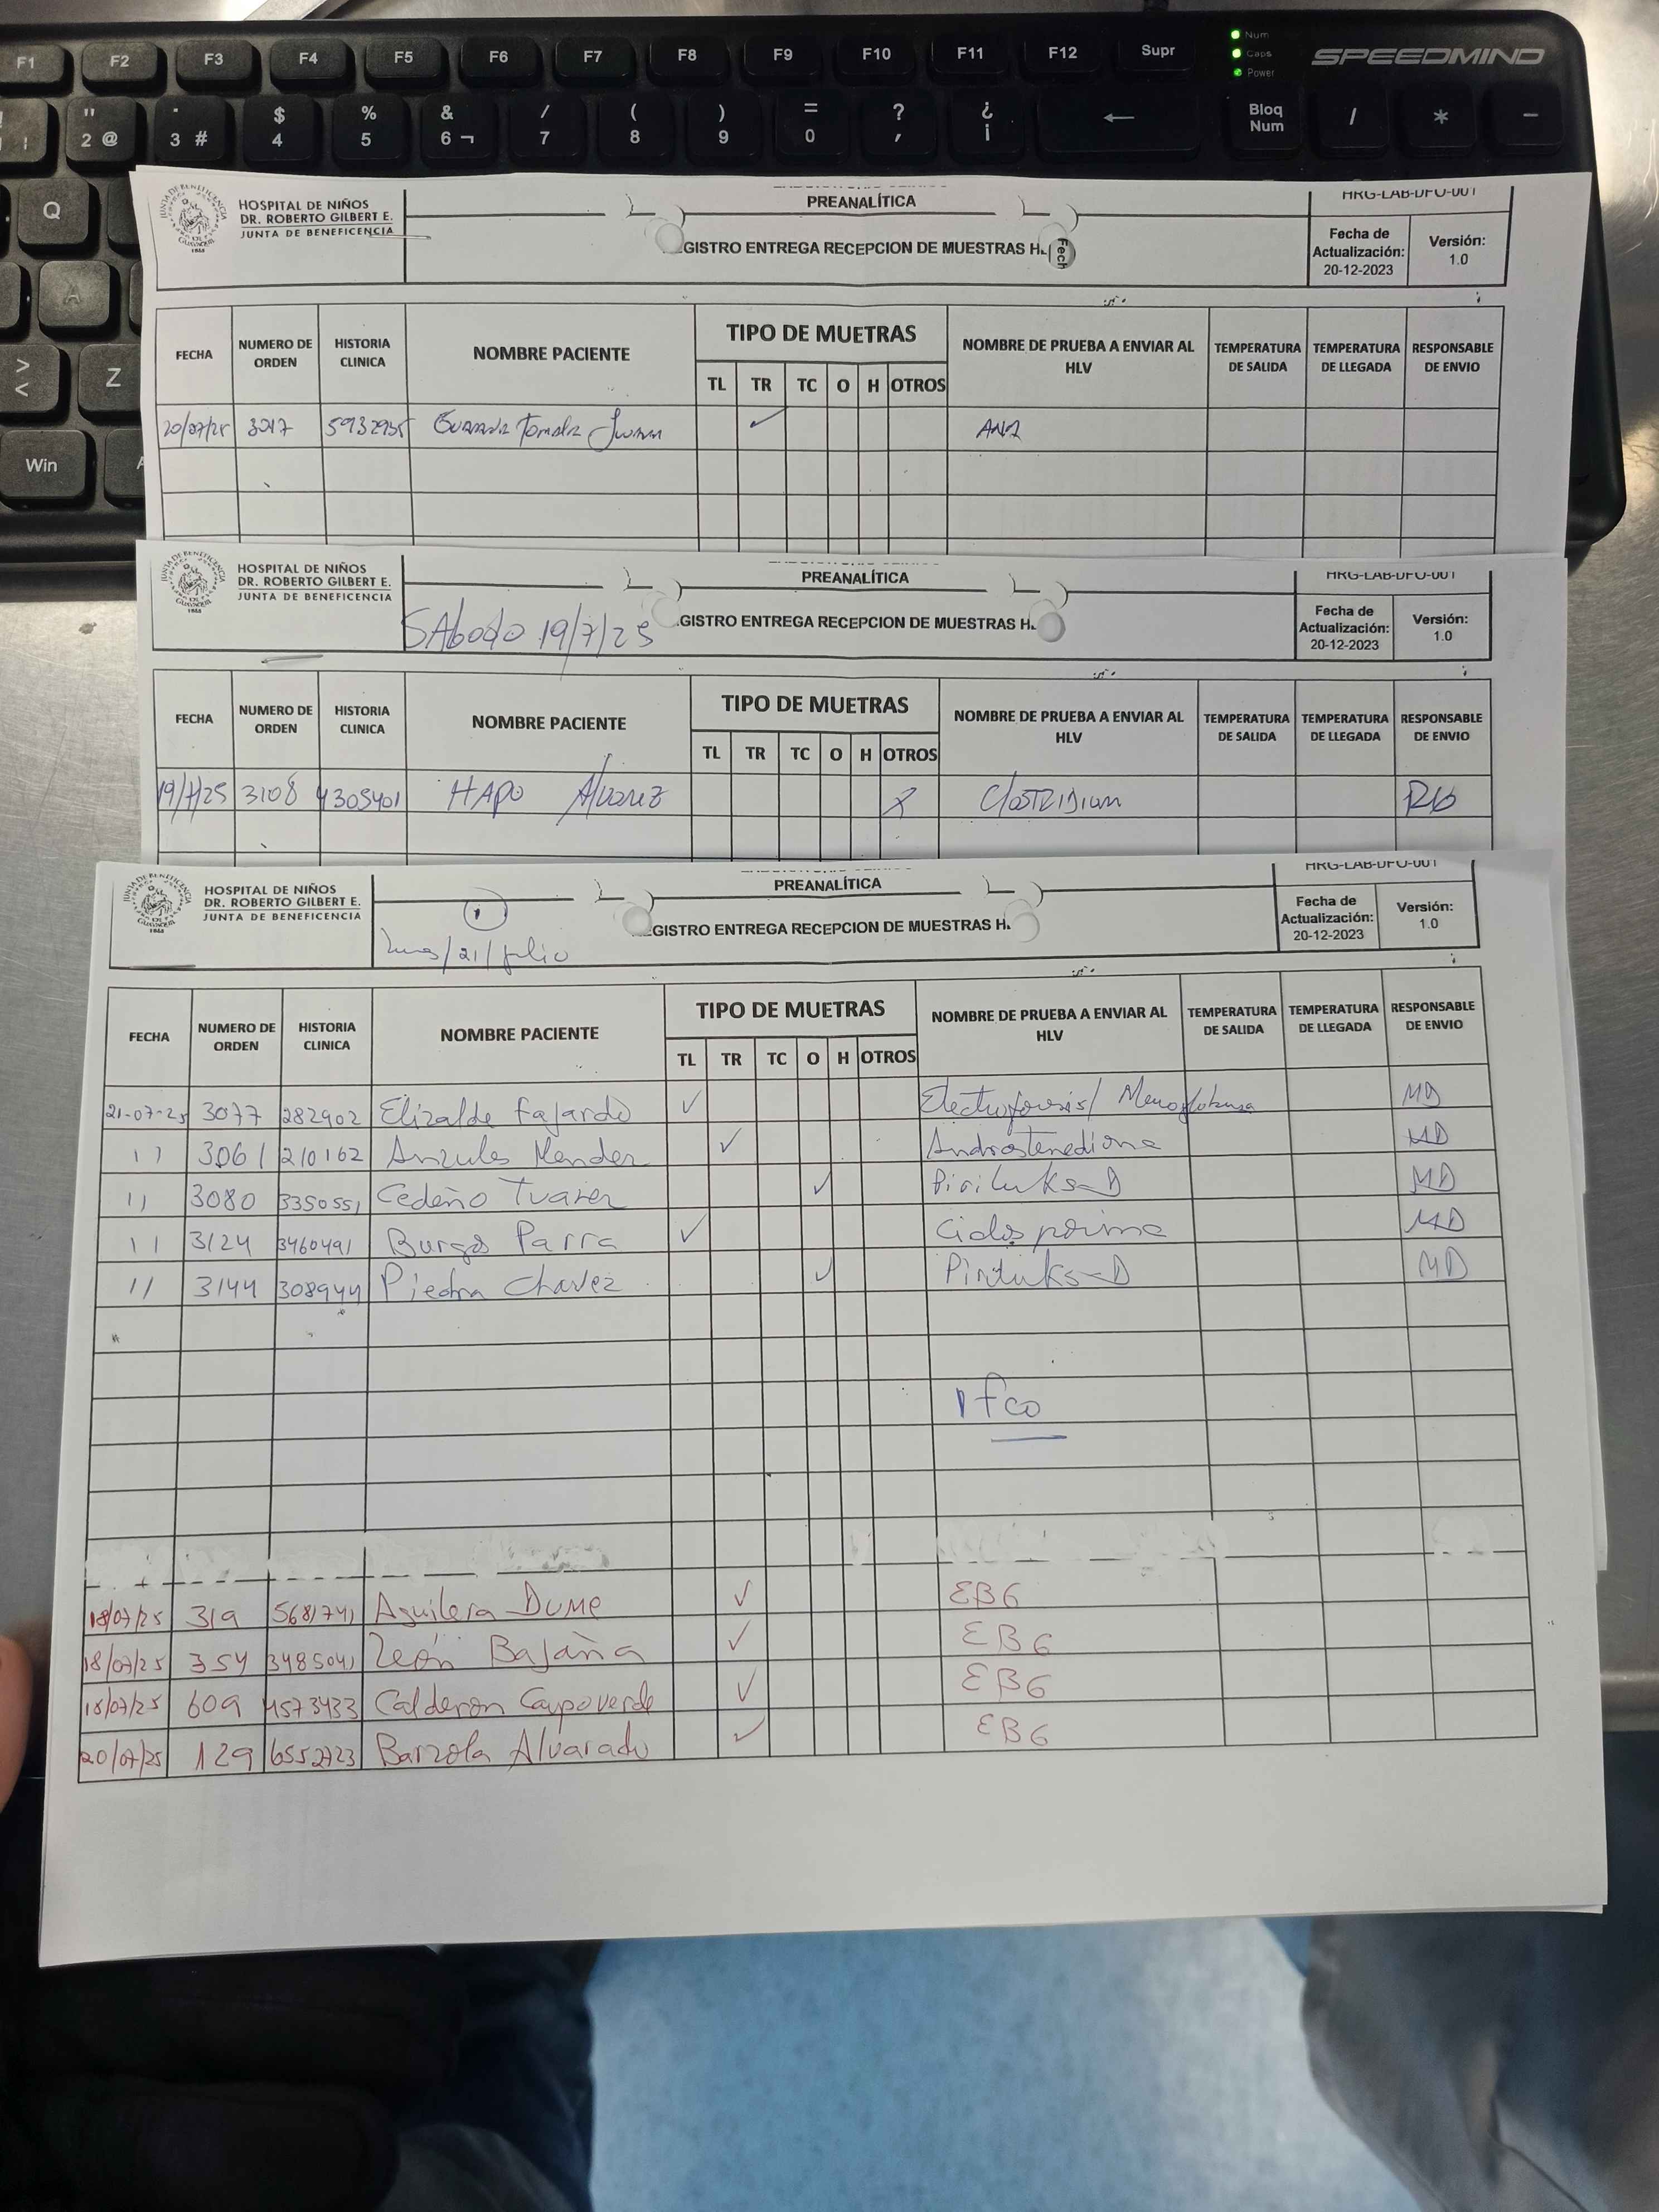 F1 F2 F3 F4 F5 F6 F7 F8 F9 F10 F11 F12 Supr
Num
Caps
Power
SPEEDMIND
" 2 @ · 3 # $ 4 % 5 & 6 ¬ / 7 ( 8 ) 9 = 0 ? ' ¿ ¡ ← Bloq Num / * −
Q
A
> < Z
Win
JUNTA DE BENEFICENCIA GUAYAQUIL 1888
HOSPITAL DE NIÑOS
DR. ROBERTO GILBERT E.
JUNTA DE BENEFICENCIA
PREANALÍTICA
GISTRO ENTREGA RECEPCION DE MUESTRAS H
Fech
HRG-LAB-DFO-001
Fecha de Actualización: 20-12-2023
Versión: 1.0
FECHA NUMERO DE ORDEN HISTORIA CLINICA NOMBRE PACIENTE TIPO DE MUETRAS NOMBRE DE PRUEBA A ENVIAR AL HLV TEMPERATURA DE SALIDA TEMPERATURA DE LLEGADA RESPONSABLE DE ENVIO
TL TR TC O H OTROS
20/07/25 3217 5932935 Tomala ✓
HOSPITAL DE NIÑOS
DR. ROBERTO GILBERT E.
JUNTA DE BENEFICENCIA
PREANALÍTICA
SAbado 19/7/25
GISTRO ENTREGA RECEPCION DE MUESTRAS H
HRG-LAB-DFO-001
Fecha de Actualización: 20-12-2023
Versión: 1.0
FECHA NUMERO DE ORDEN HISTORIA CLINICA NOMBRE PACIENTE TIPO DE MUETRAS NOMBRE DE PRUEBA A ENVIAR AL HLV TEMPERATURA DE SALIDA TEMPERATURA DE LLEGADA RESPONSABLE DE ENVIO
TL TR TC O H OTROS
19/7/25 3108 4305401 HAPO Alvarez X ClosTRIDium
HOSPITAL DE NIÑOS
DR. ROBERTO GILBERT E.
JUNTA DE BENEFICENCIA
PREANALÍTICA
EGISTRO ENTREGA RECEPCION DE MUESTRAS H
lunes/21/julio
HRG-LAB-DFO-001
Fecha de Actualización: 20-12-2023
Versión: 1.0
FECHA NUMERO DE ORDEN HISTORIA CLINICA NOMBRE PACIENTE TIPO DE MUETRAS NOMBRE DE PRUEBA A ENVIAR AL HLV TEMPERATURA DE SALIDA TEMPERATURA DE LLEGADA RESPONSABLE DE ENVIO
TL TR TC O H OTROS
21-07-25 3077 282902 Elizalde Fajardo ✓ MD
11 3061 210162 Anzules Mendez ✓ Androstenediona MD
11 3080 3350551 Cedeño Tuarez ✓ MD
11 3124 3460491 Burgos Parra ✓ MD
11 3144 308944 Piedra Chavez ✓ MD
18/07/25 319 5681741 Aguilera Dume ✓ EBG
18/07/25 354 3485041 León Bajaña ✓ EBG
18/07/25 609 4573433 Calderon Campoverde ✓ EBG
20/07/25 129 6552723 Barzola Alvarado ✓ EBG